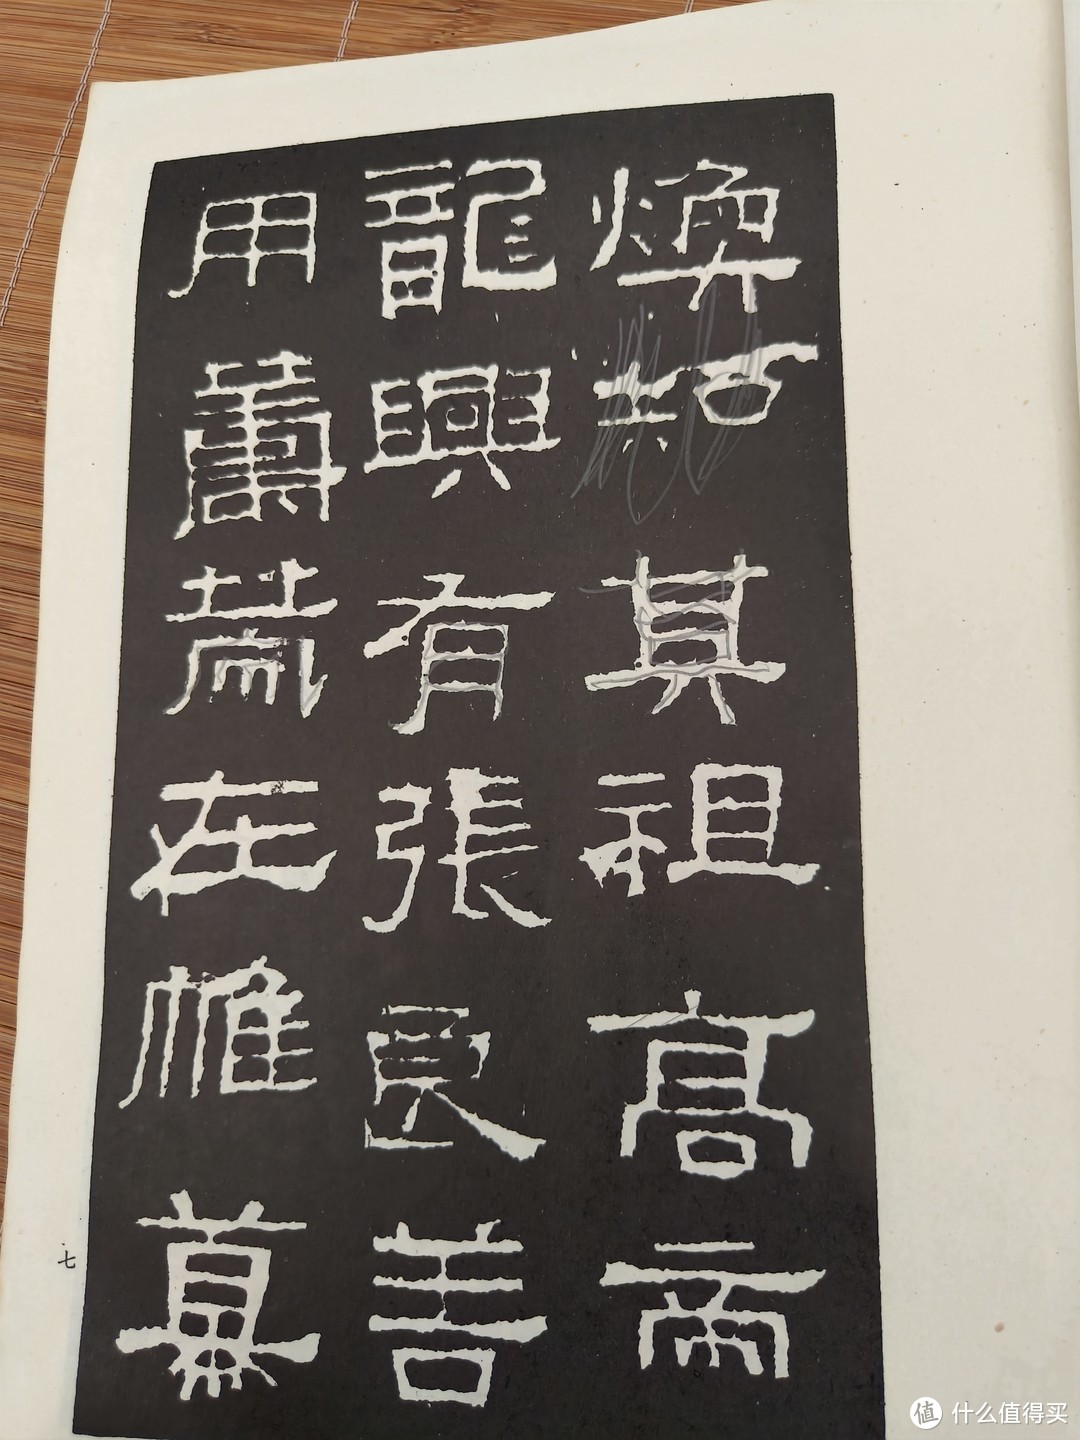 煥知其祖高帝
龍興有張良善
用籌策在帷幕
七
值 什么值得买